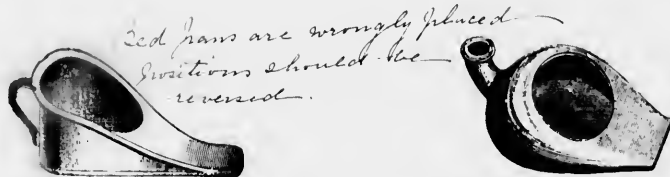 Bed pans are wrongly placed —
Positions should be —
reversed.